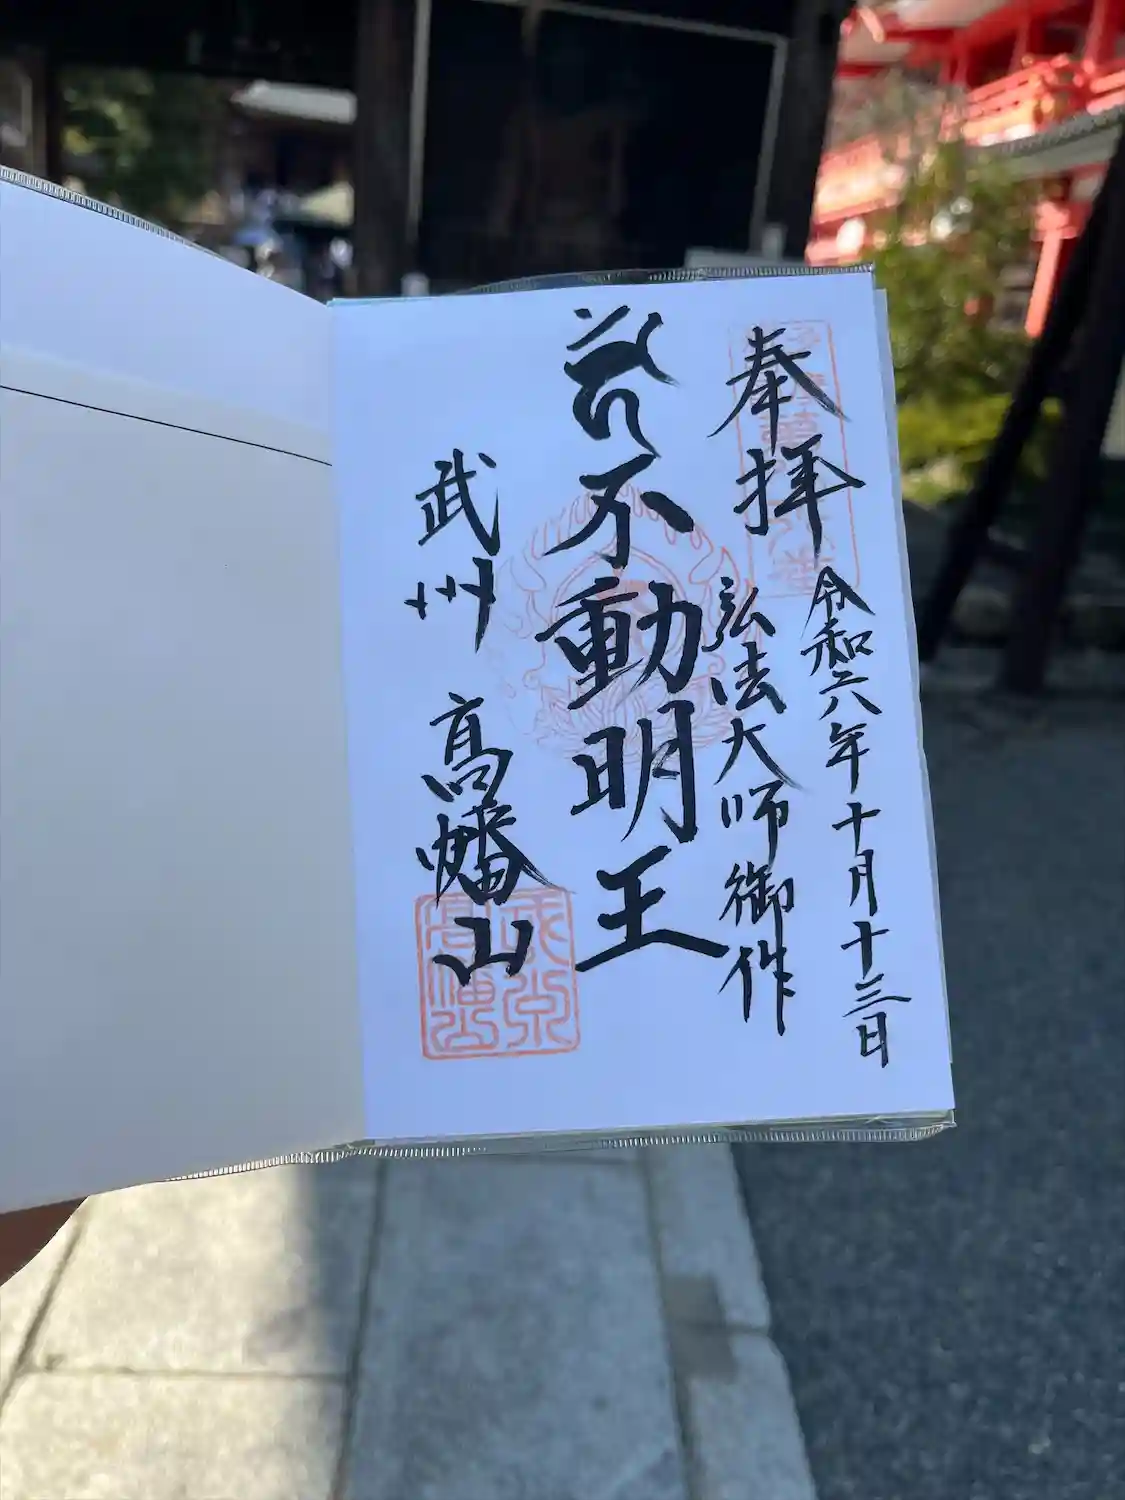 奉拝
令和六年十月十三日
弘法大師御作
不動明王
武州 高幡山